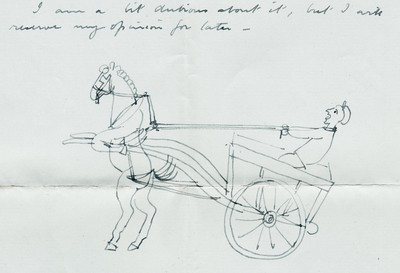 I am a bit dubious about it, but I will
reserve my opinion for later –